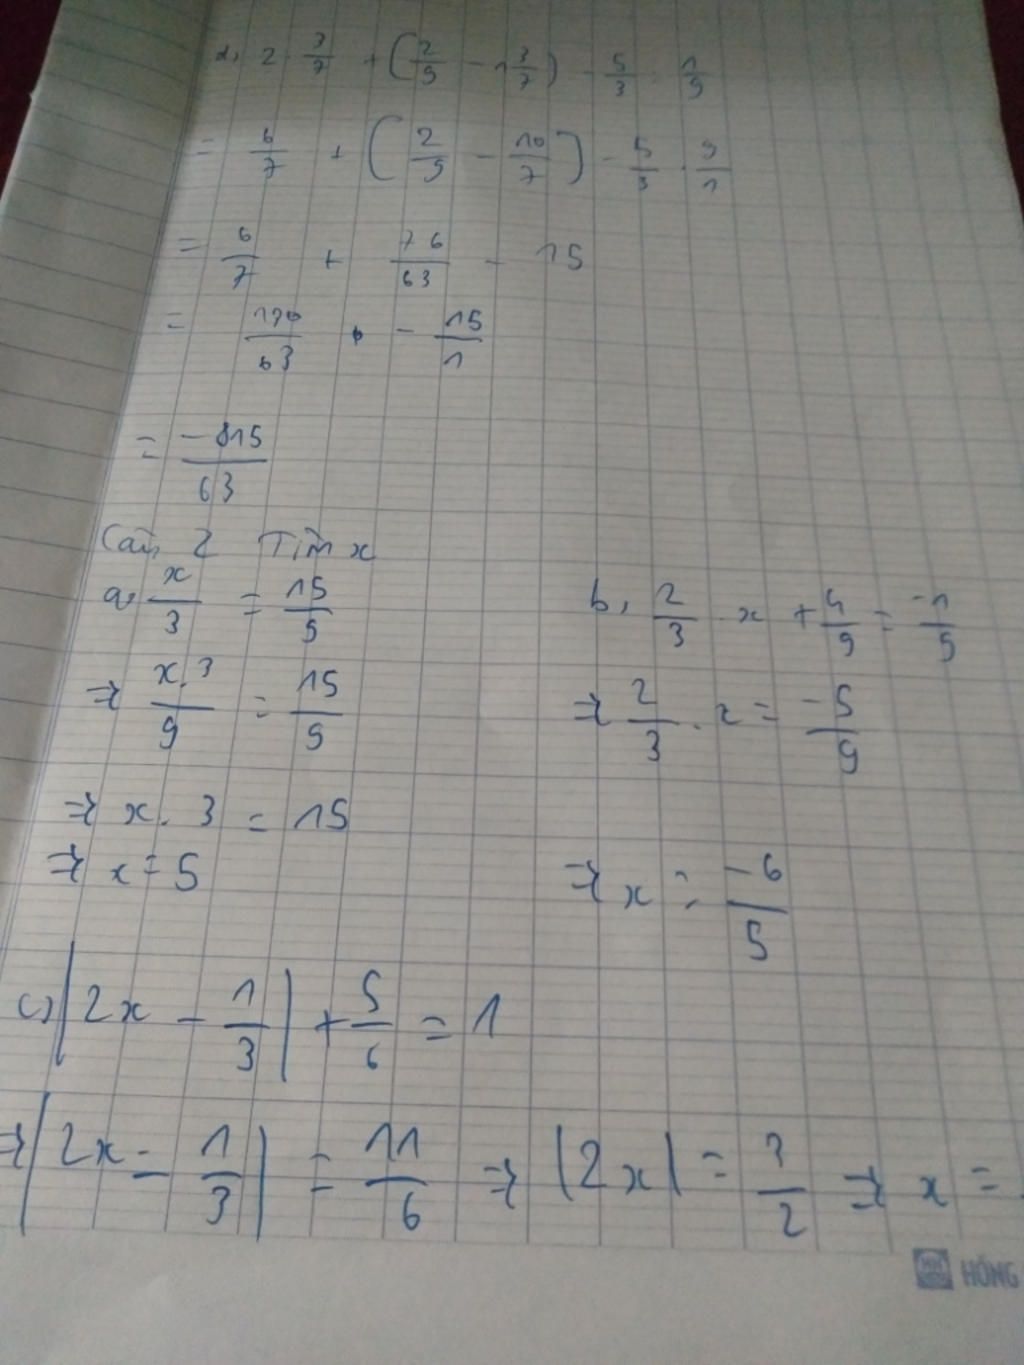 d, 2 · 3/7 + (2/9 - 1 3/7) - 5/3 : 1/9
= 6/7 + (2/9 - 10/7) - 5/3 · 9/1
= 6/7 + 76/63 - 15
= 130/63 - 15/1
= -815/63
Câu 2 Tìm x
a, x/3 = 15/9
=> x.3/9 = 15/9
=> x. 3 = 15
=> x = 5
b, 2/3 · x + 4/9 = -1/9
=> 2/3 . x = -5/9
=> x = -6/5
c) |2x - 1/3| + 5/6 = 1
=> |2x - 1/3| = 11/6 => |2x| = 3/2 => x =
HỒNG